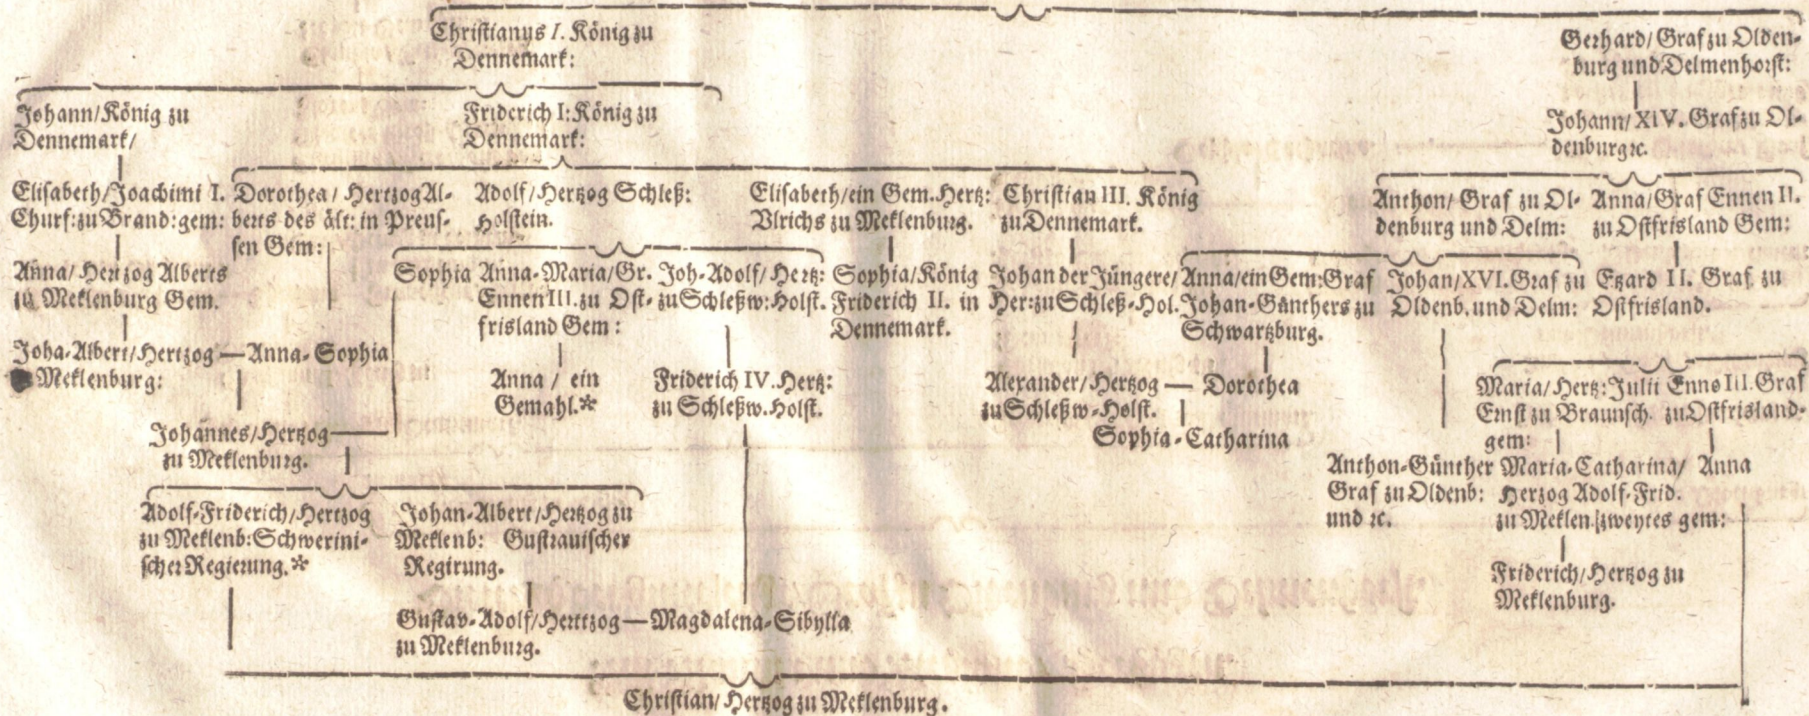 Christianus I. König zu
Dennemark:
Gerhard/Graf zu Olden-
burg und Delmenhorst:
Johann/König zu
Dennemark/
Friderich I: König zu
Dennemark:
Johann/XIV. Graf zu Ol-
denburg ꝛc.
Elisabeth/Joachimi I.
Churf: zu Brand: gem:
Dorothea/ Hertzog Al-
berts des ält: in Preus-
sen Gem:
Adolf/Hertzog Schleß:
Holstein.
Elisabeth/ein Gem. Hertz:
Vlrichs zu Meklenburg.
Christian III. König
zu Dennemark.
Anthon/ Graf zu Ol-
denburg und Delm:
Anna/Graf Ennen II.
zu Ostfrisland Gem:
Anna/ Hertzog Alberts
zu Meklenburg Gem.
Sophia
Anna-Maria/Gr.
Ennen III. zu Ost-
frisland Gem:
Joh-Adolf/ Hertz:
zu Schleßw: Holst.
Sophia/König
Friderich II. in
Dennemark.
Johan der Jüngere/
Her: zu Schleß-Hol.
Anna/ein Gem: Graf
Johan-Günthers zu
Schwartzburg.
Johan/XVI. Graf zu
Oldenb. und Delm:
Etzard II. Graf zu
Ostfrisland.
Joha-Albert/Hertzog — Anna-Sophia
Meklenburg:
Anna/ ein
Gemahl.*
Friderich IV. Hertz:
zu Schleßw. Holst.
Alexander/Hertzog — Dorothea
zu Schleßw-Holst.
Sophia-Catharina
Maria/Hertz: Julii
Ernst zu Braunsch.
gem:
Enno III. Graf
zu Ostfrisland-
Johannes/Hertzog
zu Meklenburg.
Anthon-Günther
Graf zu Oldenb:
und ꝛc.
Maria-Catharina/
Herzog Adolf-Frid.
zu Meklen/zweytes gem:
Anna
Adolf-Friderich/Hertzog
zu Meklenb: Schwerini-
scher Regierung.*
Johan-Albert/Hertzog zu
Meklenb: Gustrauischer
Regirung.
Friderich/Hertzog zu
Meklenburg.
Gustav-Adolf/Herttzog — Magdalena-Sibylla
zu Meklenburg.
Christian/ Hertzog zu Meklenburg.